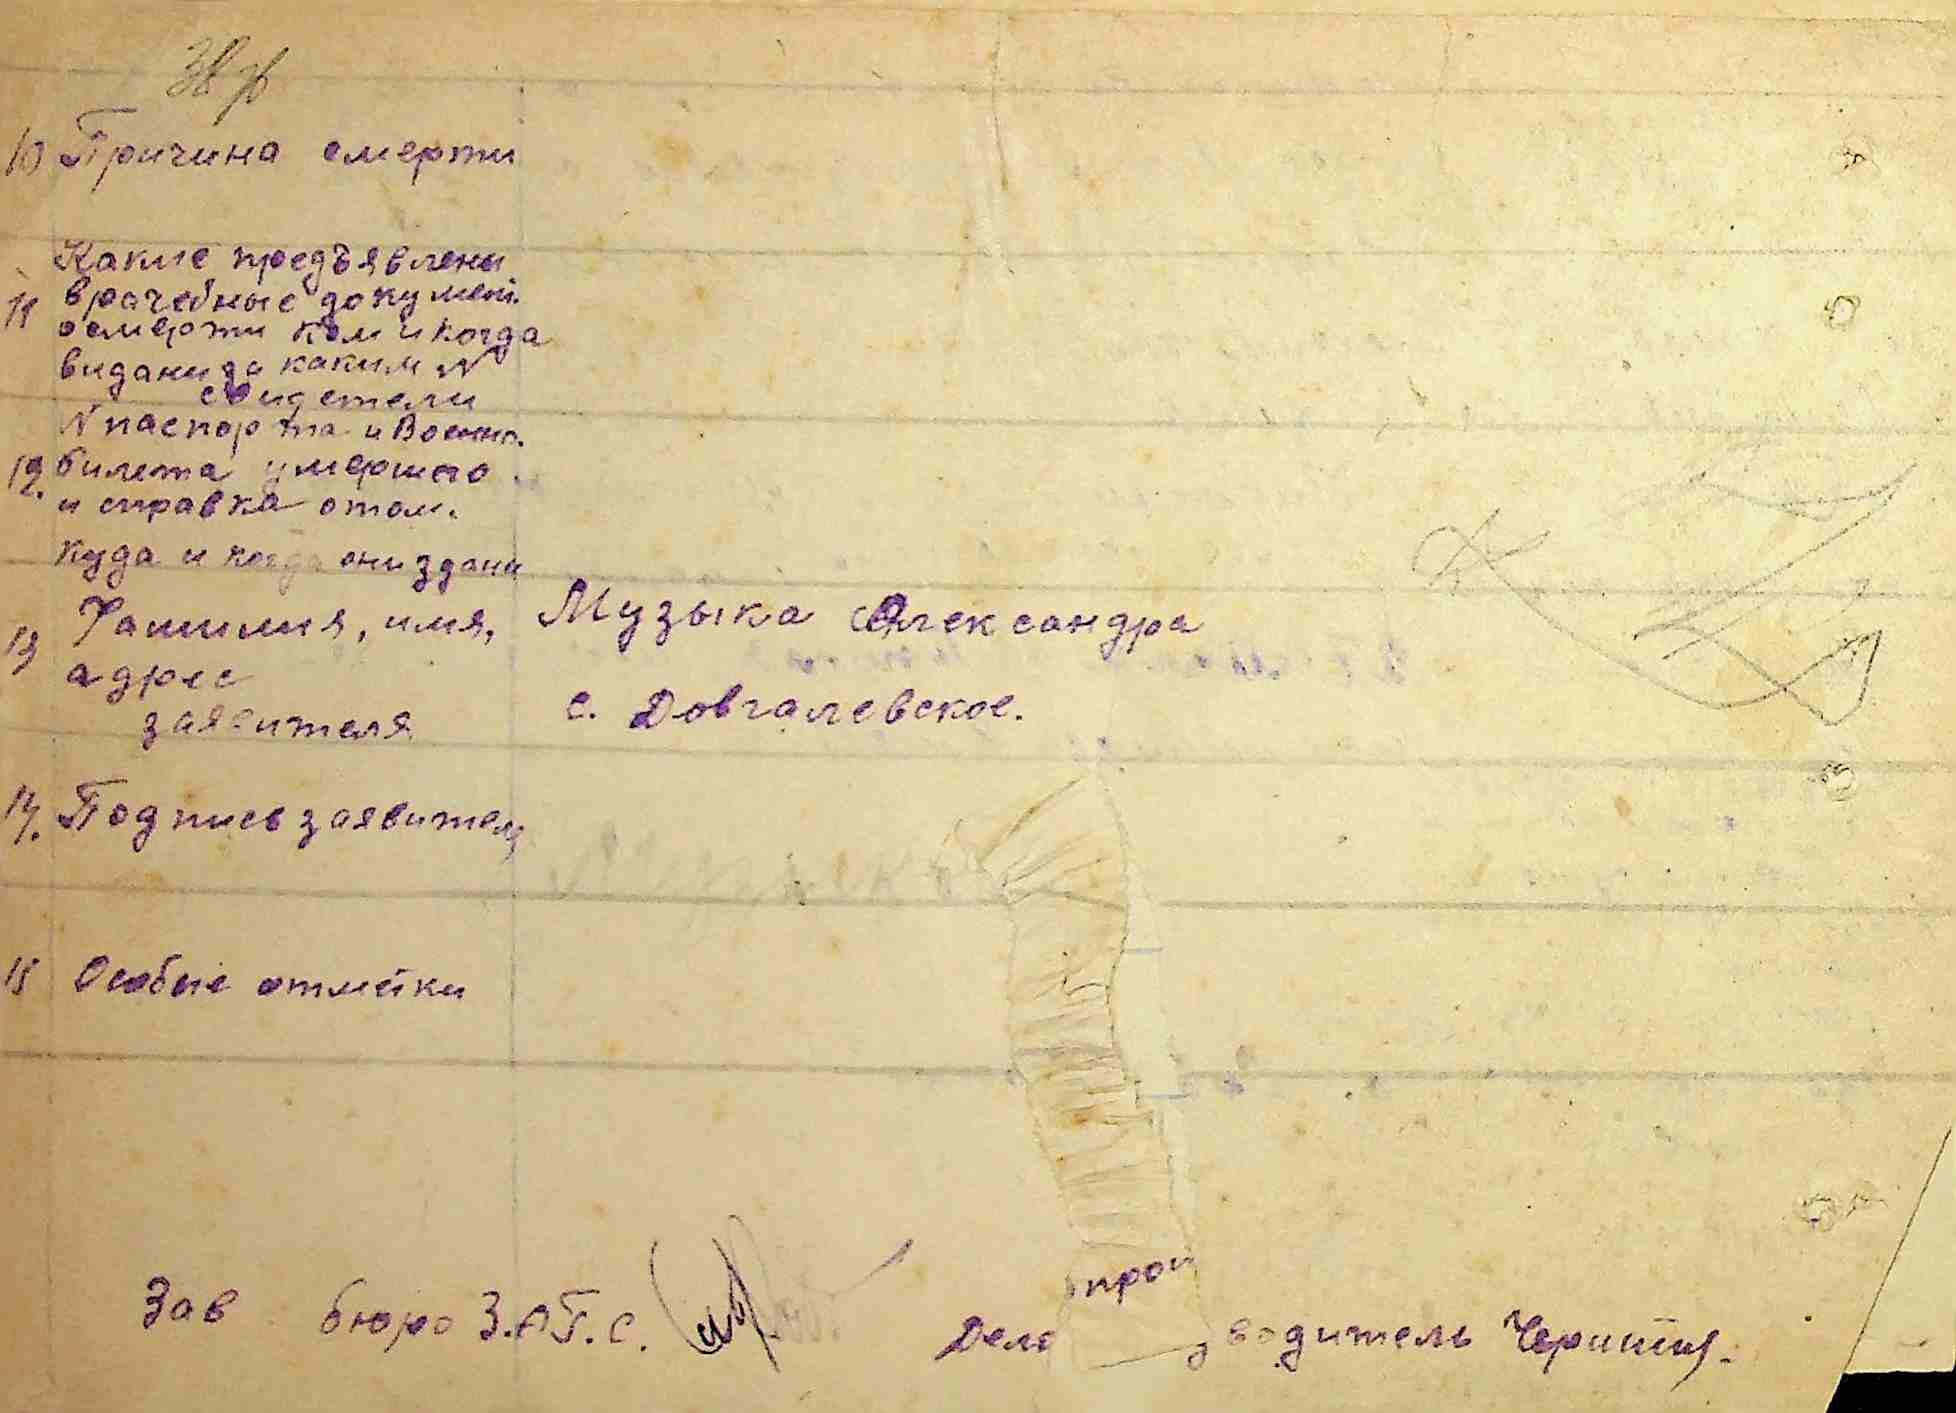 10 Причина смерти
Какие предъявлены
11 врачебные докумен.
о смерти кем и когда
видани за каким N
свидетели
N паспорта и Военно.
12. билета умершего
и справка о том.
куда и когда они здани
13 Фамилия, имя, Музыка Александра
адрес с. Довгалевское.
заявителя
14. Подпись заявителя
15 Особые отметки
Зав бюро З.А.Г.С. Делопроизводитель